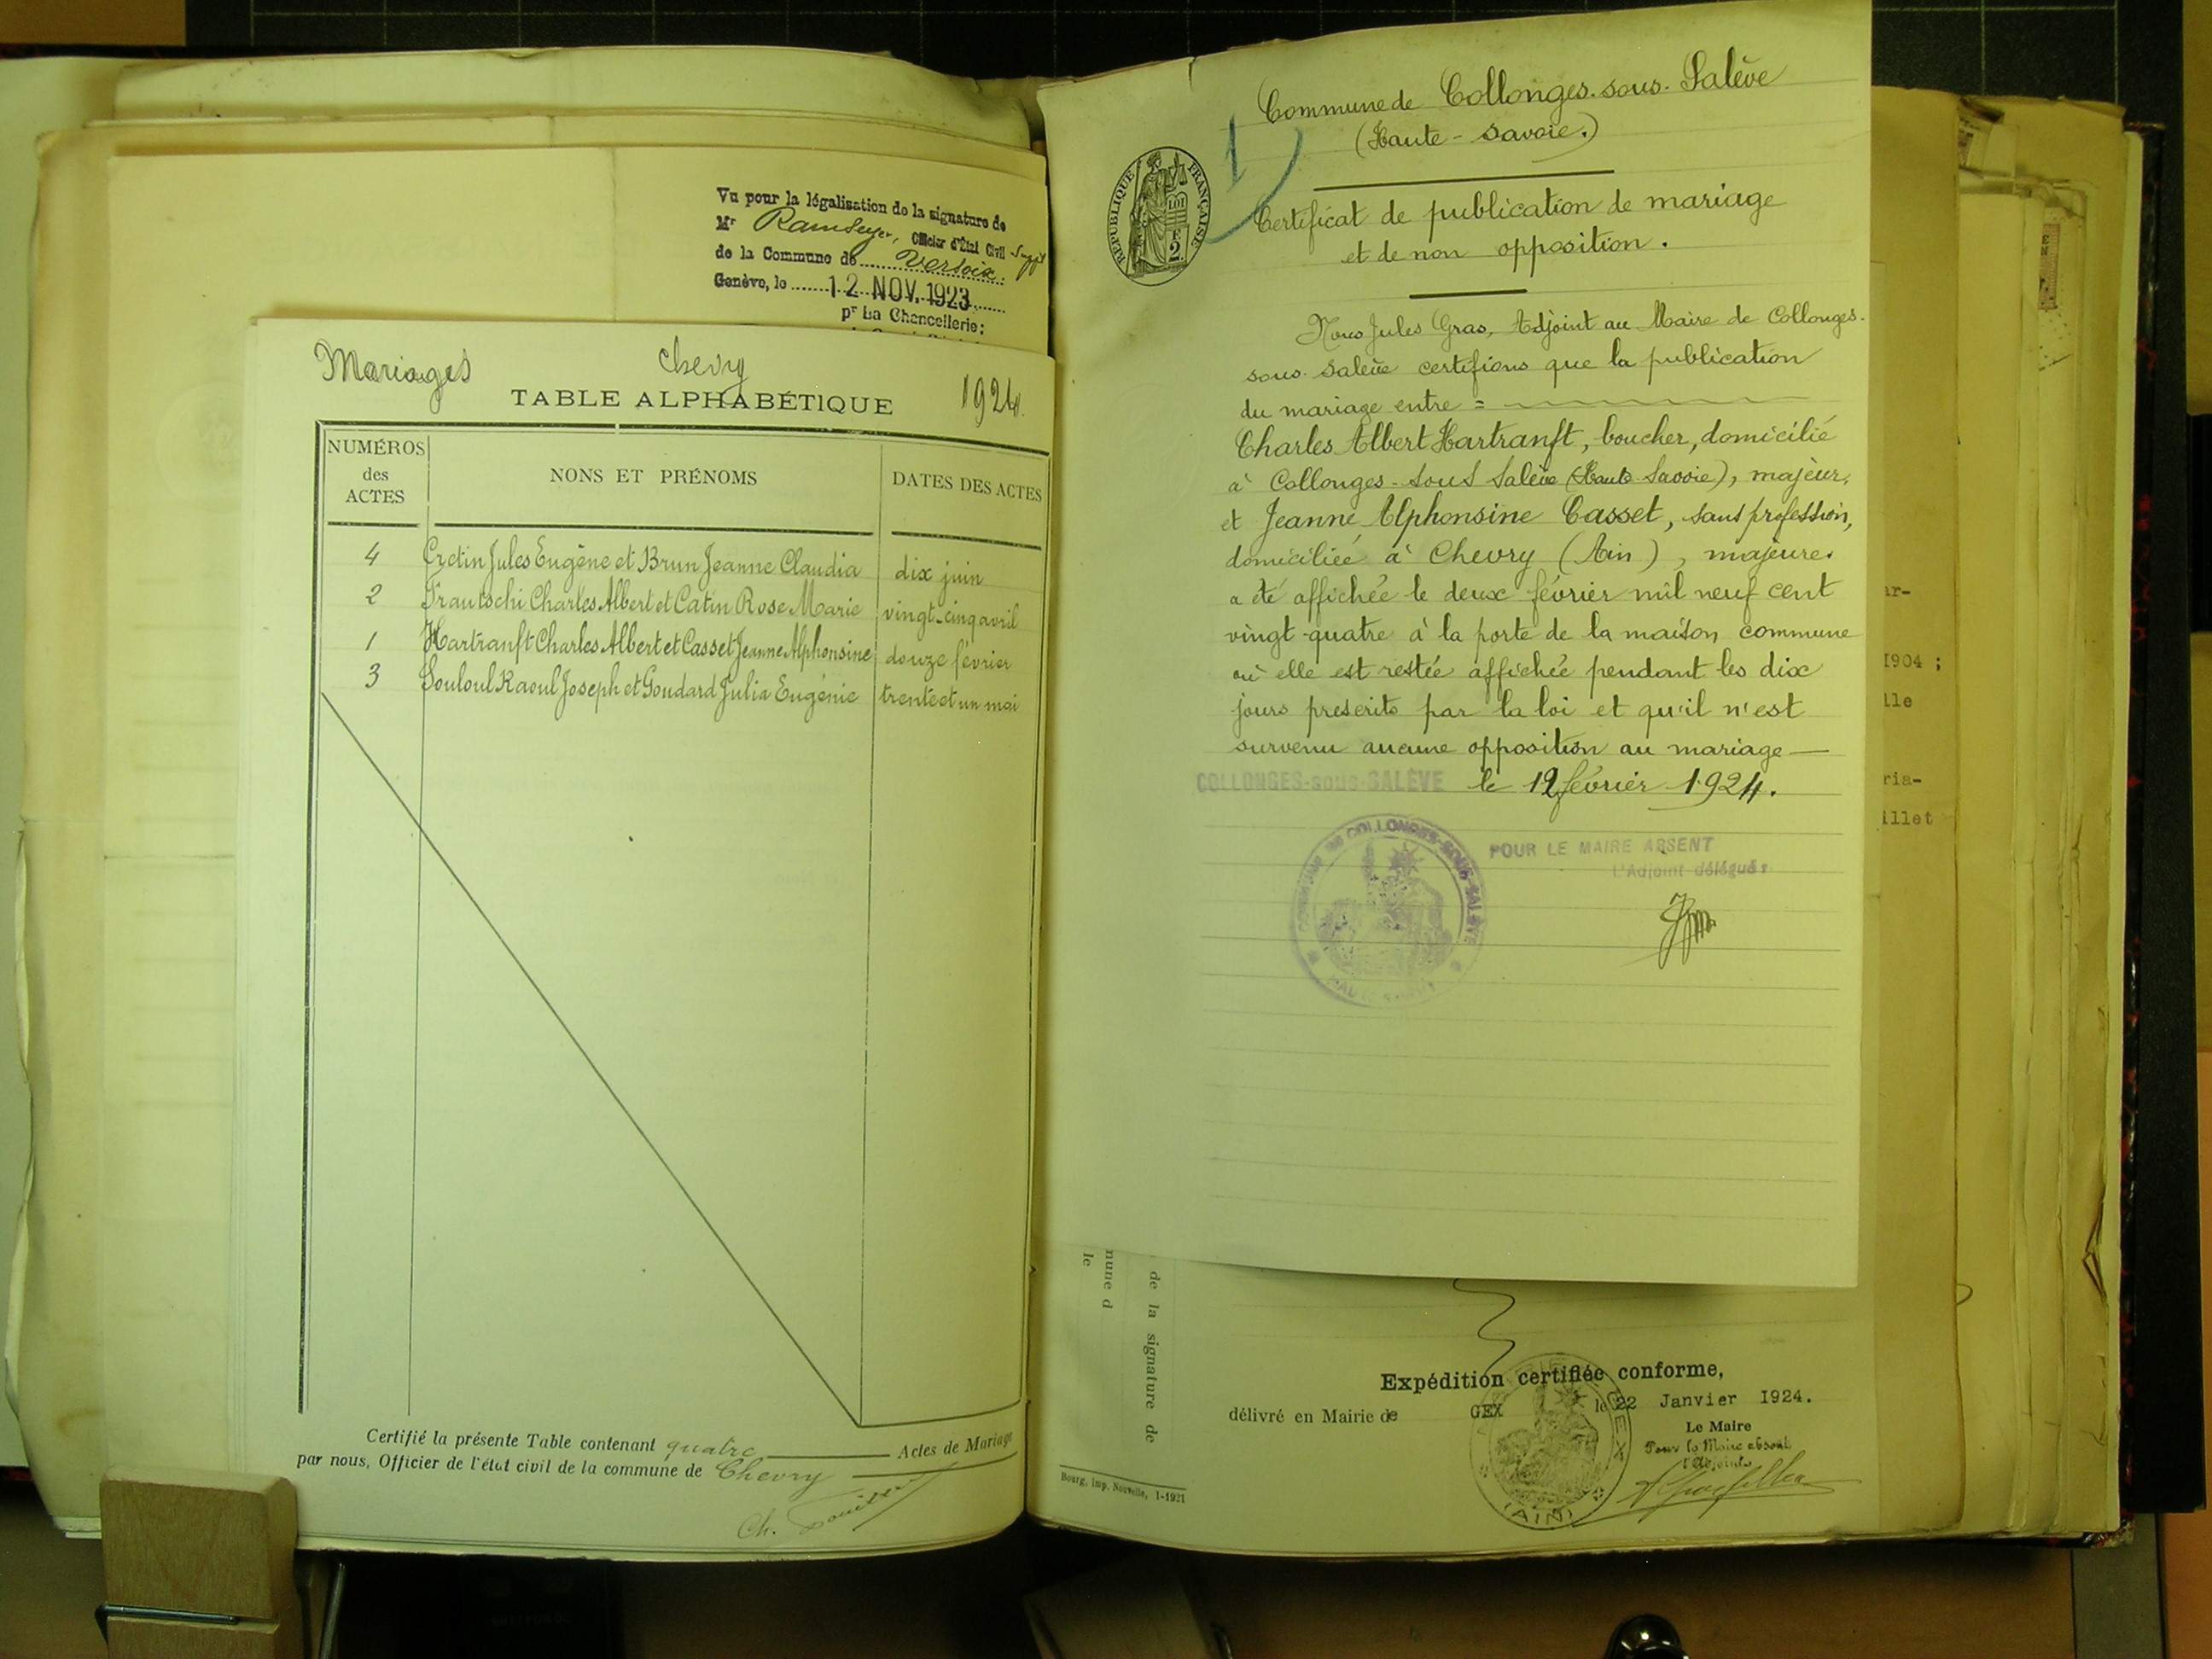 Vu pour la légalisation de la signature de
Mr Ramseyer, Officier d'État Civil Suppt
de la Commune de Versoix.
Genève, le 12 NOV. 1923
pr La Chancellerie:
Mariages Chevry 1924.
TABLE ALPHABÉTIQUE
NUMÉROS des ACTES
NONS ET PRÉNOMS
DATES DES ACTES
4 Cretin Jules Eugène et Brun Jeanne Claudia dix juin
2 Trautschi Charles Albert et Catin Rose Marie vingt-cinq avril
1 Hartranft Charles Albert et Casset Jeanne Alphonsine douze février
3 Souloul Raoul Joseph et Goudard Julia Eugénie trente et un mai
Certifié la présente Table contenant quatre Actes de Mariage
par nous, Officier de l'état civil de la commune de Chevry
Ch.
1
Commune de Collonges-sous-Salève
(Haute-Savoie.)
RÉPUBLIQUE FRANÇAISE
LOI
2
Certificat de publication de mariage
et de non opposition.
Nous Jules Gras, Adjoint au Maire de Collonges-
sous-Salève certifions que la publication
du mariage entre =
Charles Albert Hartranft, boucher, domicilié
à Collonges-sous Salève (Haute Savoie), majeur,
et Jeanne, Alphonsine Casset, sans profession,
domiciliée à Chevry (Ain), majeure.
a été affichée le deux février mil neuf cent
vingt-quatre à la porte de la maison commune
où elle est restée affichée pendant les dix
jours prescrits par la loi et qu'il n'est
survenu aucune opposition au mariage —
COLLONGES-sous-SALÈVE le 12 février 1924.
COMMUNE DE COLLONGES-SOUS-SALÈVE
POUR LE MAIRE ABSENT
L'Adjoint délégué:
ar-
1904 ;
lle
ria-
illet
nune d
le
de la signature de
Expédition certifiée conforme,
délivré en Mairie de GEX le 22 Janvier 1924.
Le Maire
Pour le Maire absent
l'Adjoint
MAIRIE DE GEX
(AIN)
Bourg, imp. Nouvelle, 1-1921